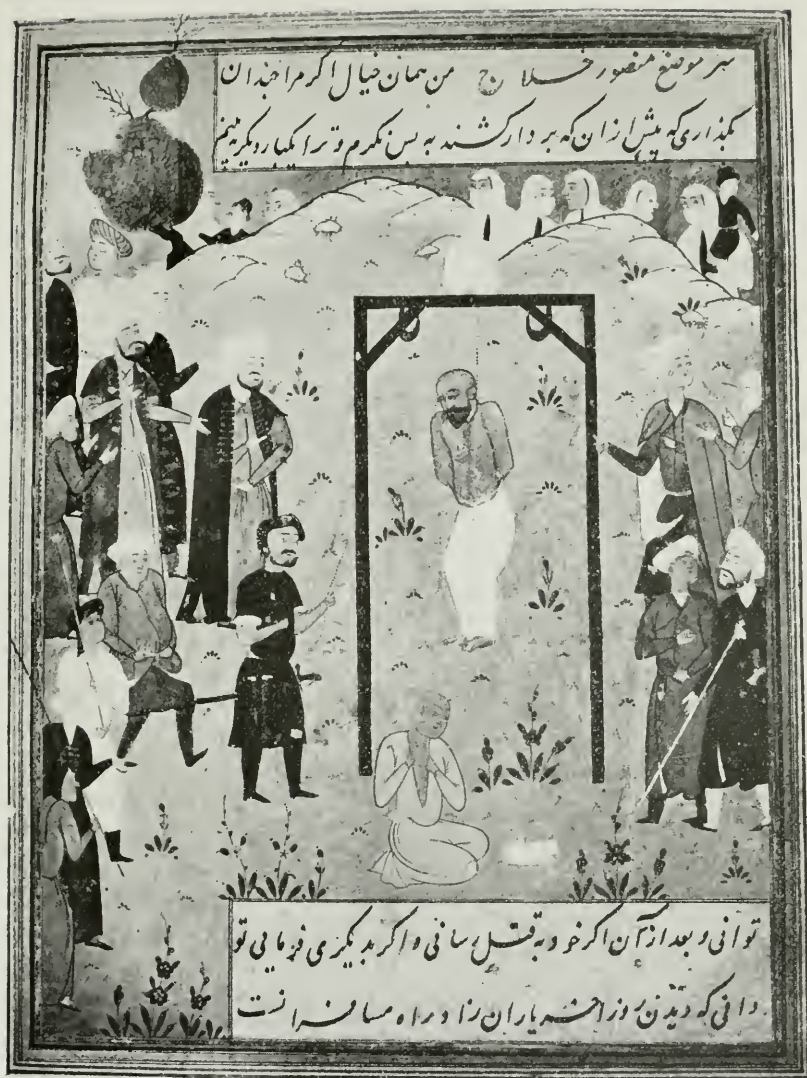 سر موضع منصور حلاج من همان خیال اگر مرا چندان
بگذاری که پیش از ان که بر دار کشند به بس نکرم و ترا یکبار دیگر به بینم
توانی و بعد از آن اگر خود به قتل رسانی و اگر بدیگری فرمایی تو
دانی که دیدن روز اخر یاران زاد راه مسافرانست